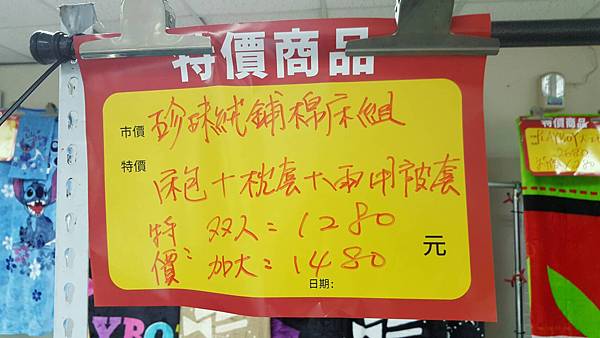 特價商品
市價 珍珠純鋪棉床組
特價 床包十枕套十兩用被套
特價: 双人=1280
加大=1480
元
日期:
特價商品